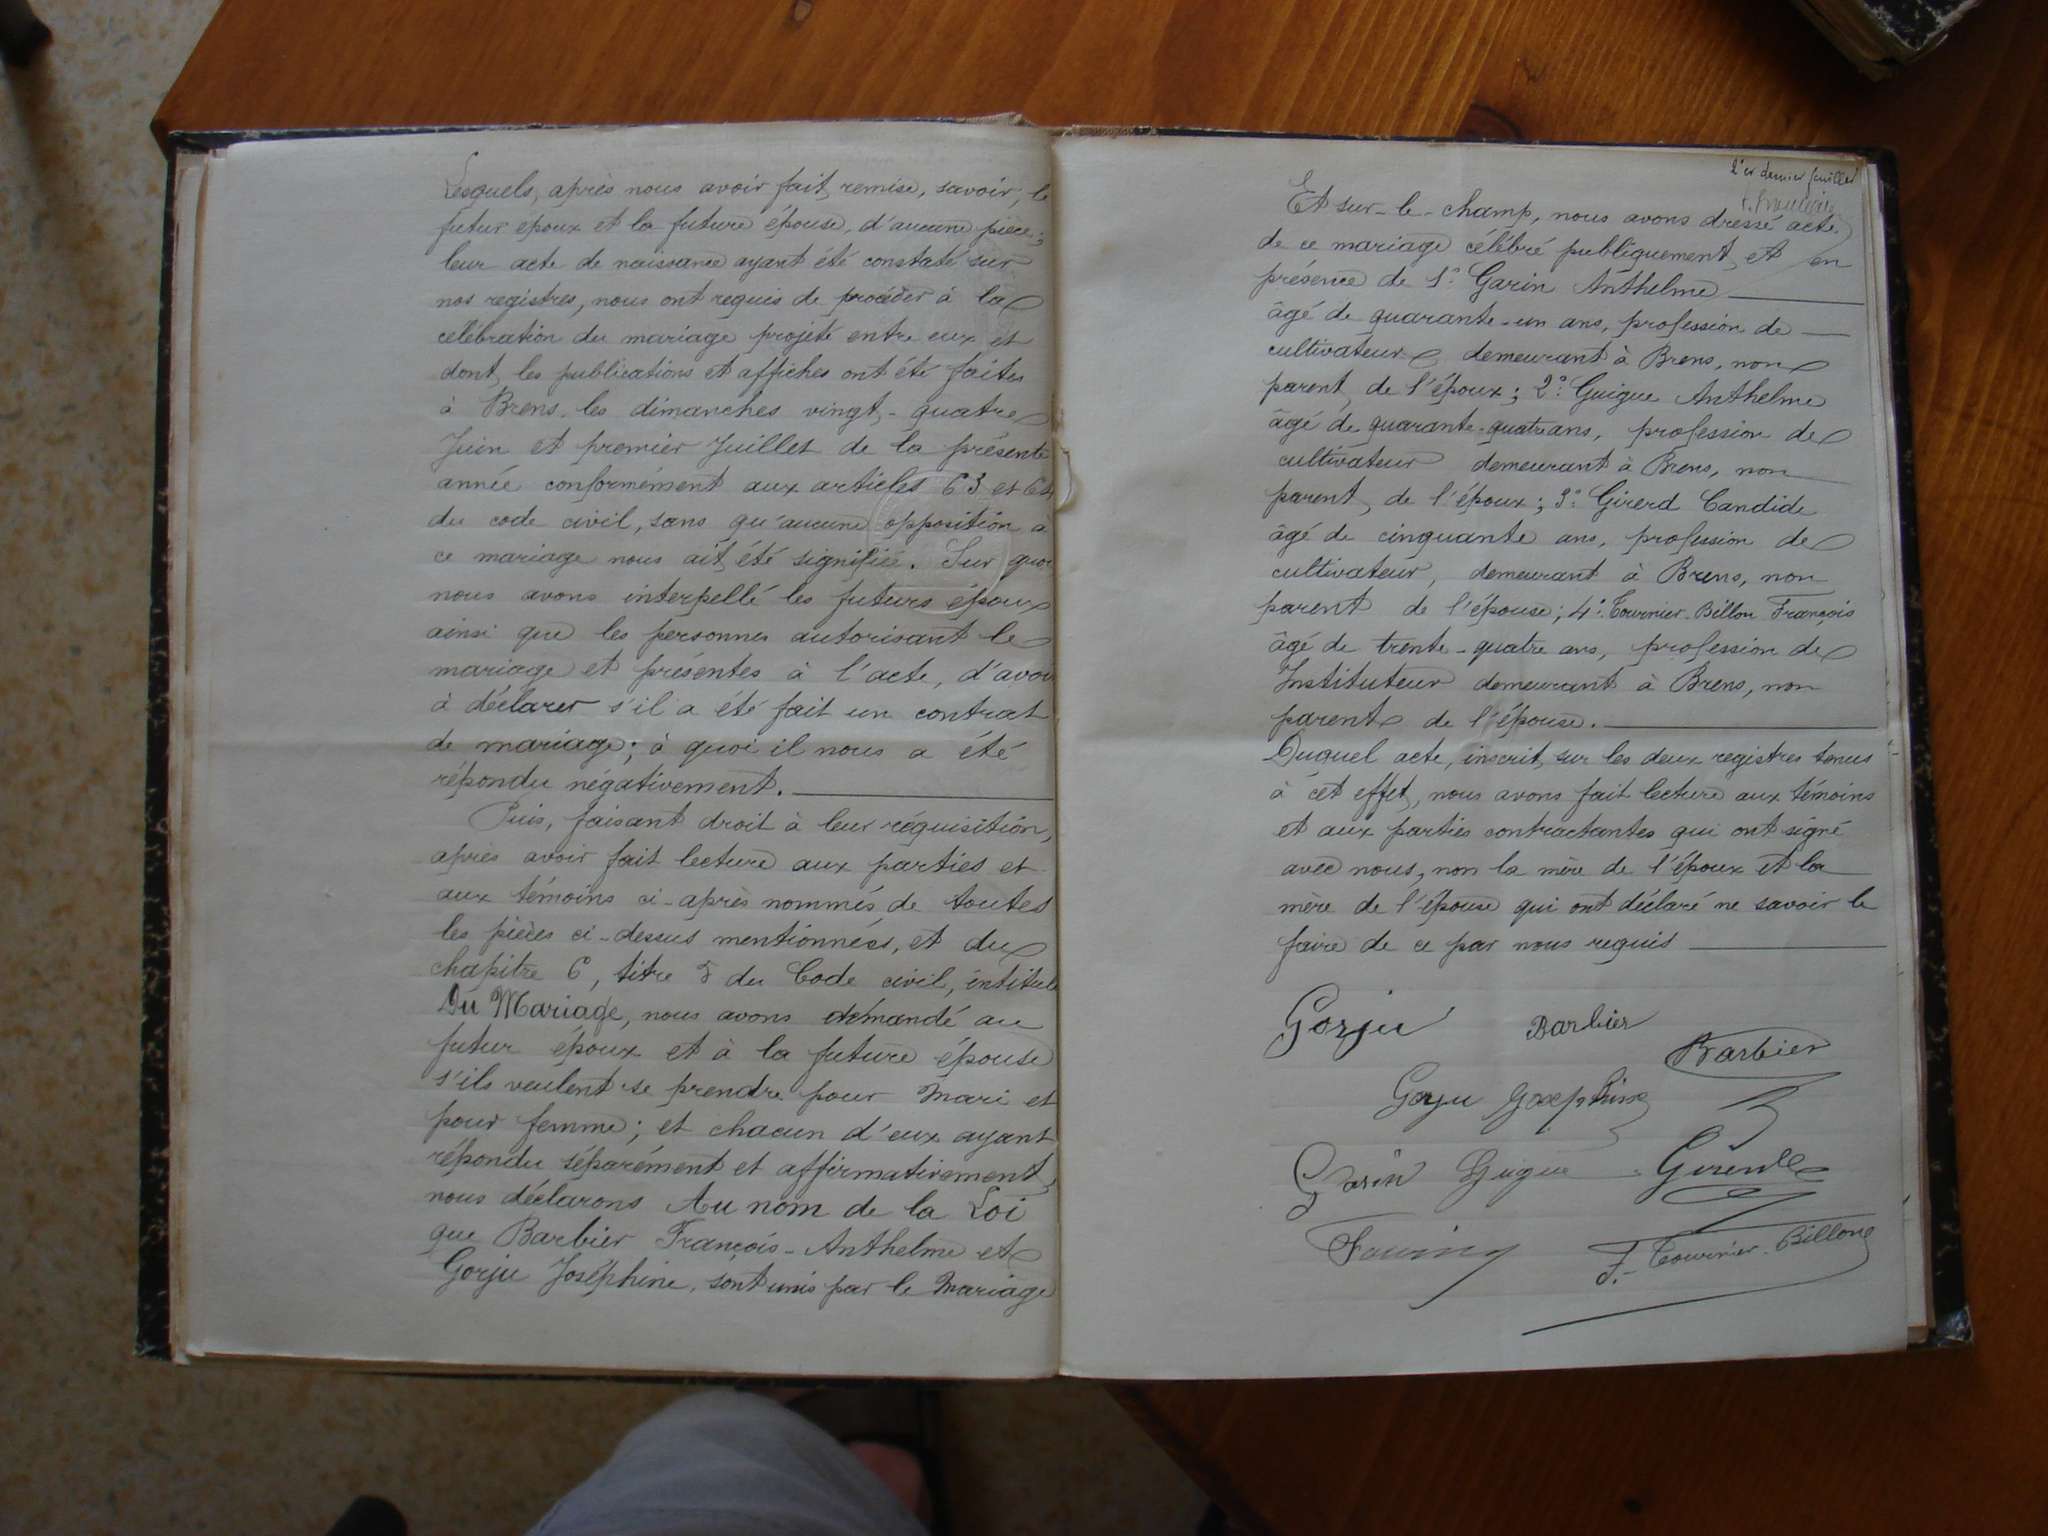 Lesquels, après nous avoir fait remise, savoir, le
futur époux et la future épouse, d'aucune pièce;
leur acte de naissance ayant été constaté sur
nos registres, nous ont requis de procéder à la
célébration du mariage projeté entre eux et
dont les publications et affiches ont été faites
à Brens les dimanches vingt-quatre
Juin et premier Juillet de la présente
année conformément aux articles 63 et 64
du code civil, sans qu'aucune opposition à
ce mariage nous ait été signifiée. Sur quoi
nous avons interpellé les futurs époux
ainsi que les personnes autorisant le
mariage et présentes à l'acte, d'avoir
à déclarer s'il a été fait un contrat
de mariage; à quoi il nous a été
répondu négativement.
Puis, faisant droit à leur réquisition,
après avoir fait lecture aux parties et
aux témoins ci-après nommés, de toutes
les pièces ci-dessus mentionnées, et du
chapitre 6, titre 5 du Code civil, intitulé
Du Mariage, nous avons demandé au
futur époux et à la future épouse
s'ils veulent se prendre pour Mari et
pour femme; et chacun d'eux ayant
répondu séparément et affirmativement,
nous déclarons Au nom de la Loi
que Barbier François-Anthelme et
Gorju Joséphine, sont unis par le Mariage
2e et dernier feuillet
Et sur-le-champ, nous avons dressé acte
de ce mariage célébré publiquement, et en
présence de 1° Garin Anthelme
âgé de quarante-un ans, profession de
cultivateur demeurant à Brens, non
parent de l'époux; 2° Guigue Anthelme
âgé de quarante-quatre ans, profession de
cultivateur demeurant à Brens, non
parent de l'époux; 3° Girerd Candide
âgé de cinquante ans, profession de
cultivateur, demeurant à Brens, non
parent de l'épouse; 4° Tournier-Billon François
âgé de trente-quatre ans, profession de
Instituteur demeurant à Brens, non
parent de l'épouse.
Duquel acte, inscrit sur les deux registres tenus
à cet effet, nous avons fait lecture aux témoins
et aux parties contractantes qui ont signé
avec nous, non la mère de l'époux et la
mère de l'épouse qui ont déclaré ne savoir le
faire de ce par nous requis
Gorju Barbier
Barbier
Gorju Josephine
Garin Guigue Girerd
F. Tournier-Billon